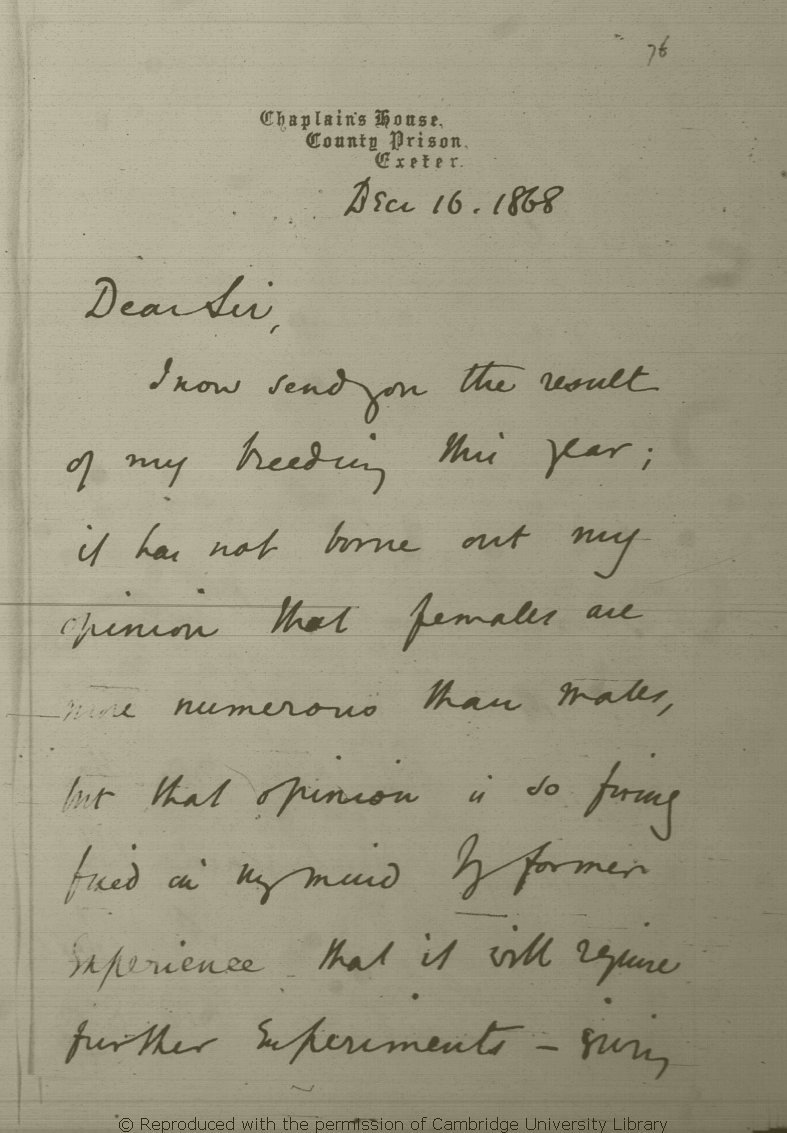 76
Chaplain's House,
County Prison,
Exeter.
Decr 16. 1868
Dear Sir,
I now send you the result
of my breeding this year;
it has not borne out my
opinion that females are
more numerous than males,
but that opinion is so firmly
fixed in my mind by former
experience that it will require
further experiments – giving
© Reproduced with the permission of Cambridge University Library